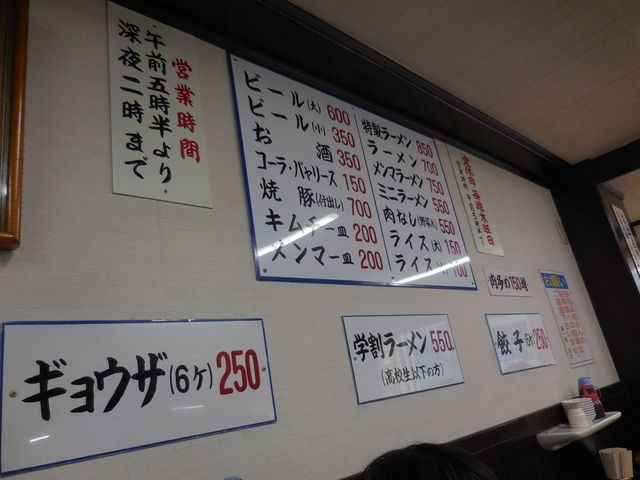 営業時間
午前五時半より
深夜二時まで
ビール(大) 600
ビール(小) 350
お酒 350
コーラ・バャリース 150
焼豚(付出し) 700
キムチ一皿 200
メンマ一皿 200
特製ラーメン 850
ラーメン 700
メンマラーメン 750
ミニラーメン 550
肉なし(野菜入) 550
ライス(大) 150
ライス(小) 100
定休日・毎週水曜日
肉多め150増
お願い
ギョウザ(6ケ) 250
学割ラーメン 550
(高校生以下の方)
餃子 6ケ 250